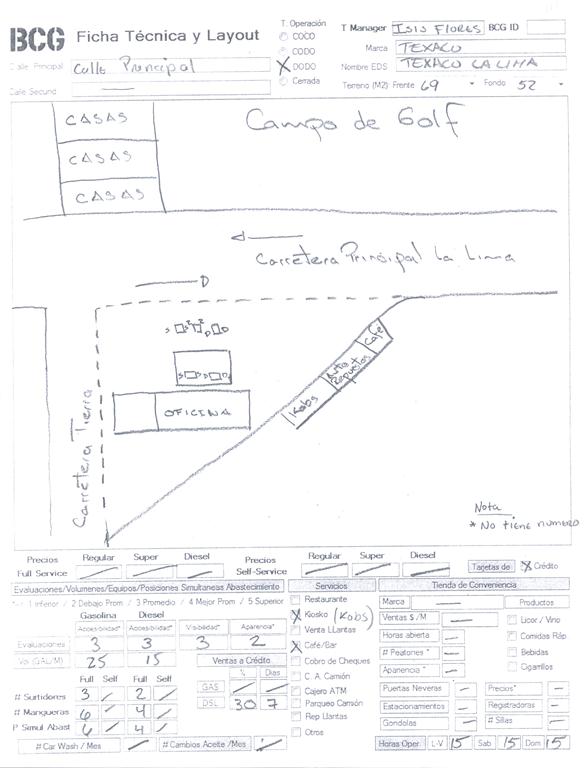 BCG Ficha Técnica y Layout
T. Operación
COCO
CODO
X DODO
Cerrada
T Manager ISIS FLORES BCG ID
Marca TEXACO
Nombre EDS TEXACO LA LIMA
Terreno (M2): Frente 69 Fondo 52
Calle Principal Calle Principal
Calle Secund —
CASAS
CASAS
CASAS
Campo de Golf
Carretera Principal La Lima
Cafe
Auto Repuestos
Kobs
OFICINA
Carretera Tierra
Nota
* NO TIENE NUMERO
Precios Regular Super Diesel Precios Regular Super Diesel
Full Service Self-Service Tarjetas de X Crédito
Evaluaciones/Volumenes/Equipos/Posiciones Simultaneas Abastecimiento
1 Inferior / 2 Debajo Prom / 3 Promedio / 4 Mejor Prom / 5 Superior
Gasolina Diesel
Accesibilidad* Accesibilidad* Visibilidad* Apariencia*
Evaluaciones 3 3 3 2
Vol (GAL/M) 25 15 Ventas a Crédito
Full Self Full Self % Dias
GAS
DSL 30 7
# Surtidores 3 2
# Mangueras 6 4
P Simul Abast 6 4
# Car Wash / Mes # Cambios Aceite /Mes
Servicios
Restaurante
X Kiosko (Kobs)
Venta Llantas
X Café/Bar
Cobro de Cheques
C. A. Camión
Cajero ATM
Parqueo Camión
Rep Llantas
Otros
Tienda de Conveniencia
Marca — Productos
Ventas $ /M — Licor / Vino
Horas abierta — Comidas Ráp
# Peatones * — Bebidas
Apariencia * — Cigarrillos
Puertas Neveras — Precios* —
Estacionamientos — Registradoras —
Gondolas — # Sillas —
Horas Oper. L-V 15 Sab 15 Dom 15